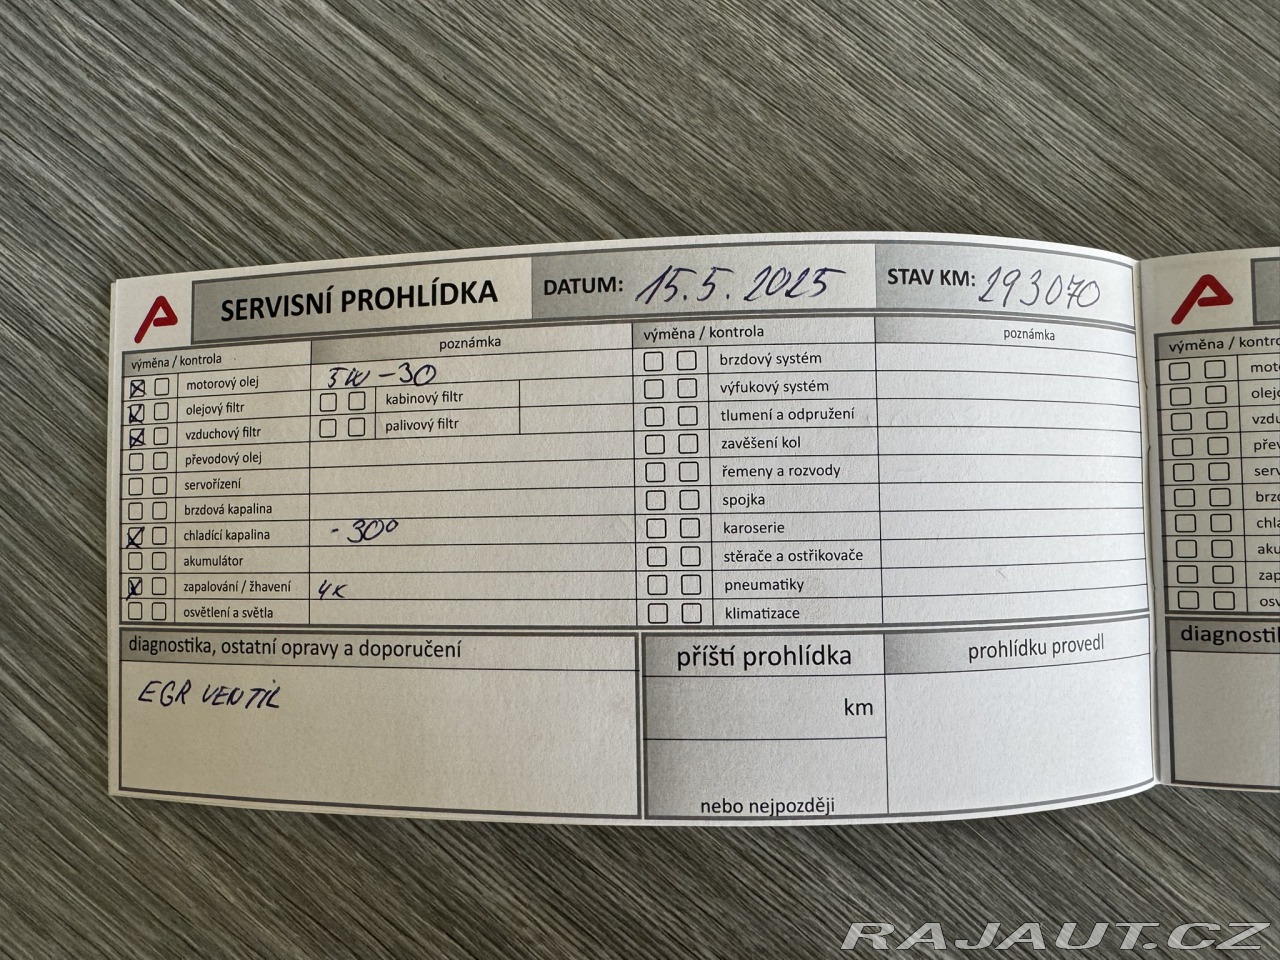 SERVISNÍ PROHLÍDKA DATUM: 15.5.2025 STAV KM: 293070
výměna / kontrola poznámka výměna / kontrola poznámka
motorový olej 5W-30 brzdový systém
olejový filtr kabinový filtr výfukový systém
vzduchový filtr palivový filtr tlumení a odpružení
převodový olej zavěšení kol
servořízení řemeny a rozvody
brzdová kapalina spojka
chladící kapalina -30° karoserie
akumulátor stěrače a ostřikovače
zapalování / žhavení 4K pneumatiky
osvětlení a světla klimatizace
diagnostika, ostatní opravy a doporučení příští prohlídka prohlídku provedl
EGR VENTIL
km
nebo nejpozději
výměna / kontrol
moto
olejo
vzdu
přev
serv
brzd
chla
aku
zap
osv
diagnostik
RAJAUT.CZ